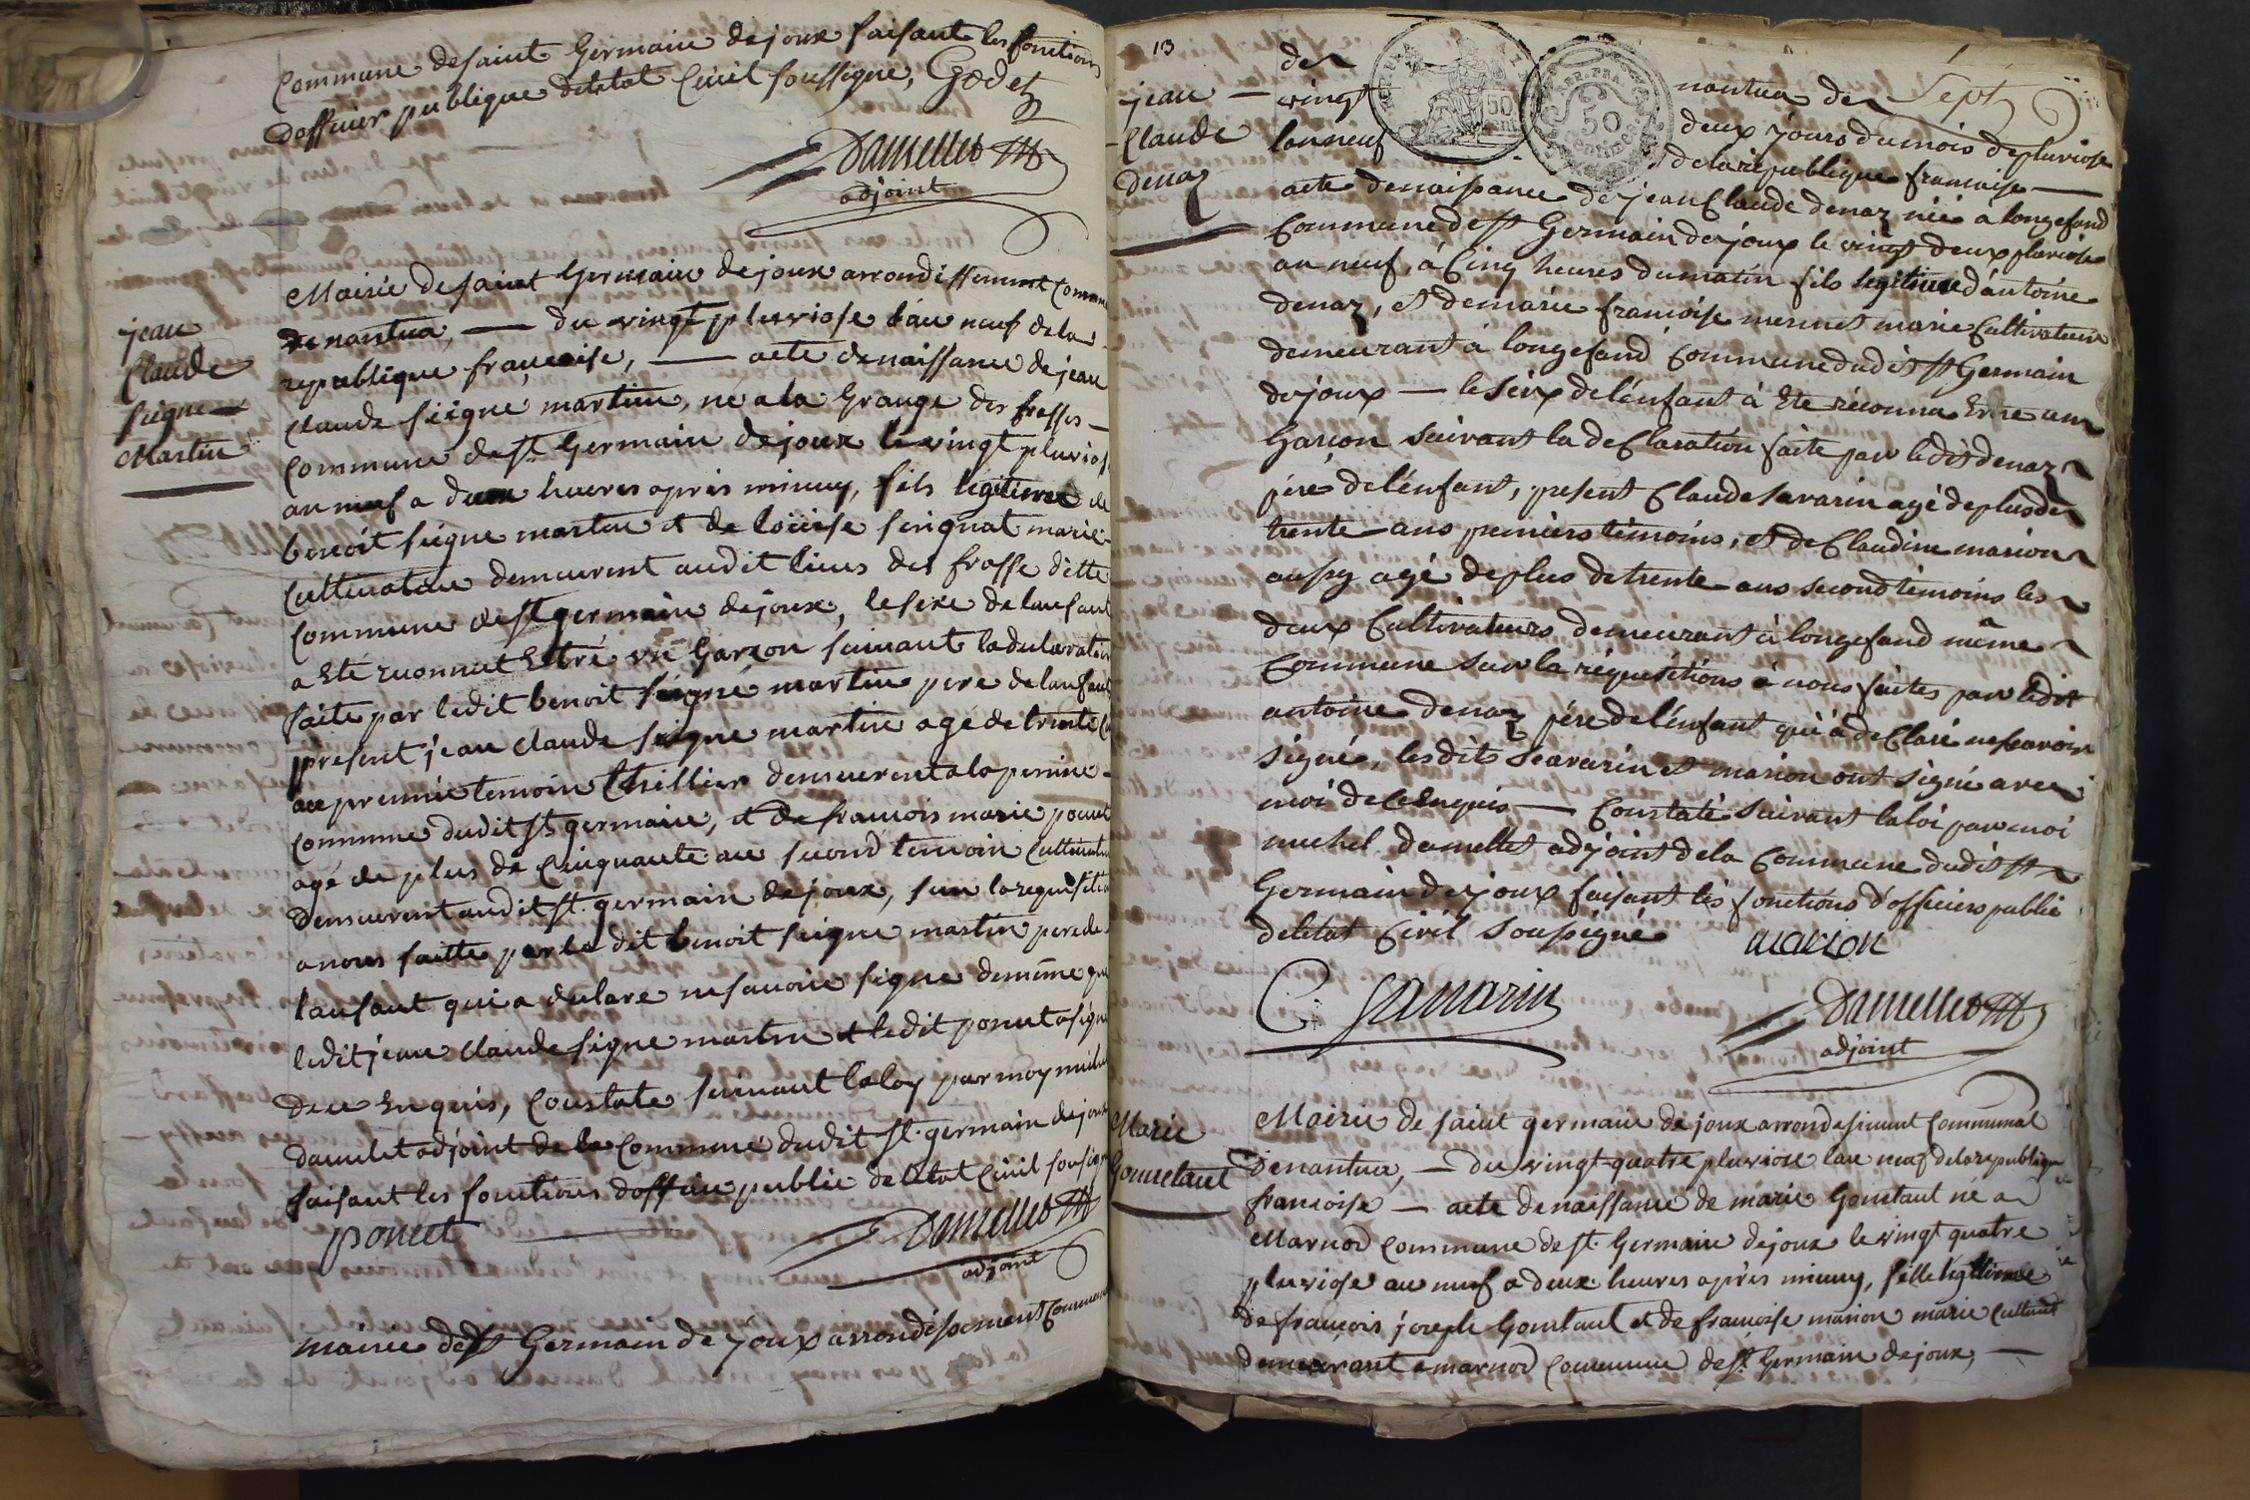 Commune de saint Germain de joux faisant les fonctions
dofficier publique deletat Civil soussigne, Godet
Damellet
adjoint
jean
Claude
seigne
Martin
Mairie de saint Germain de joux arrondissement Commu
de nantua, — du vingt pluviose l'an neuf de la
republique française, — acte de naissance de jean
claude seigne martin, né a la Grange des frasses —
commune de st Germain de joux le vingt pluviose
an neuf a deux heures après minuy, fils legitime de
benoit seigne martin et de loüise marié
Cultivateur demeurent audit lieus des frasse ditte
Commune de st germain de joux, le sexe de lanfant
a Eté reconnut Estre un Garçon suivant la declaration
faite par ledit benoit seigne martin pere de lanfant
present jean claude seigne martin agé de trente
ans premie temoin demeurent a la
commune dudit st germain, et de francois marie poncet
agé de plus de Cinquante ans second temoin Cultivateur
demeurent audit st. germain de joux, sur la requisition
a nous faitte par le dit benoit seigne martin pere de
lanfant qui a declare ne savoire signe de même que
ledit jean claude signe martin et ledit poncet a signé
de ce Enquis, Constate suivant la loy par moy michel
damelet adjoint de la Commune dudit st. germain de joux
faisant les fonctions doffice public deletat Civil sousigne
poncet
Damellet
adjoint
mairie de st Germain de joux arrondissement Commun
13
jean —
Claude
denaz
de nantua du Sept
vingt deux jours du mois de pluviose
lan neuf de la republique francaise —
acte de naissance de jean Claude denaz née a longefand
Commune de st Germain de joux le vingt deux pluviose
an neuf, à Cinq heures du matin fils legitime d'antoine
denaz, et de marie francoise mermet marie Cultivateur
demeurant à longefand Commune dudit st Germain
de joux — le sexe de lénfant à Ete réconnu Etre un
Garcon suivant la deClaration faite par ledit denaz
péré de lénfant, présent Claude savarin agé de plus de
trente ans prémiers témoins, et de Claudine marion
aussy agé de plus de trente ans second témoins les
deux Cultivateurs demeurant à longefand même
Commune sur la réquisitions à nous faites par ledit
antoine denaz pére de lénfant qui à deClaré ne scavoir
signé, lesdits savarin et marion ont signé avec
moi de ce Enquis — Constaté suivant la loi par moi
michel damellet adjoint de la Commune dudit st
Germain de joux faisant les fonctions d'officiers public
deletat Civil Soussigné
marion
C. Savarin
Damellet
adjoint
Marie
Goustant
Mairie de saint germain de joux arrondissiment Communal
de nantua, — du vingt-quatre pluviose lan neuf de la republique
francoise — acte de naissance de marie Goustant né a
Marnod commune de st. Germain de joux le vingt quatre
pluviose an neuf a deux heures après minuy, fille légitime
de françois joseph Goustant et de francoise marion marie Cultivat
demeurant a marnod commune de st. Germain de joux, —